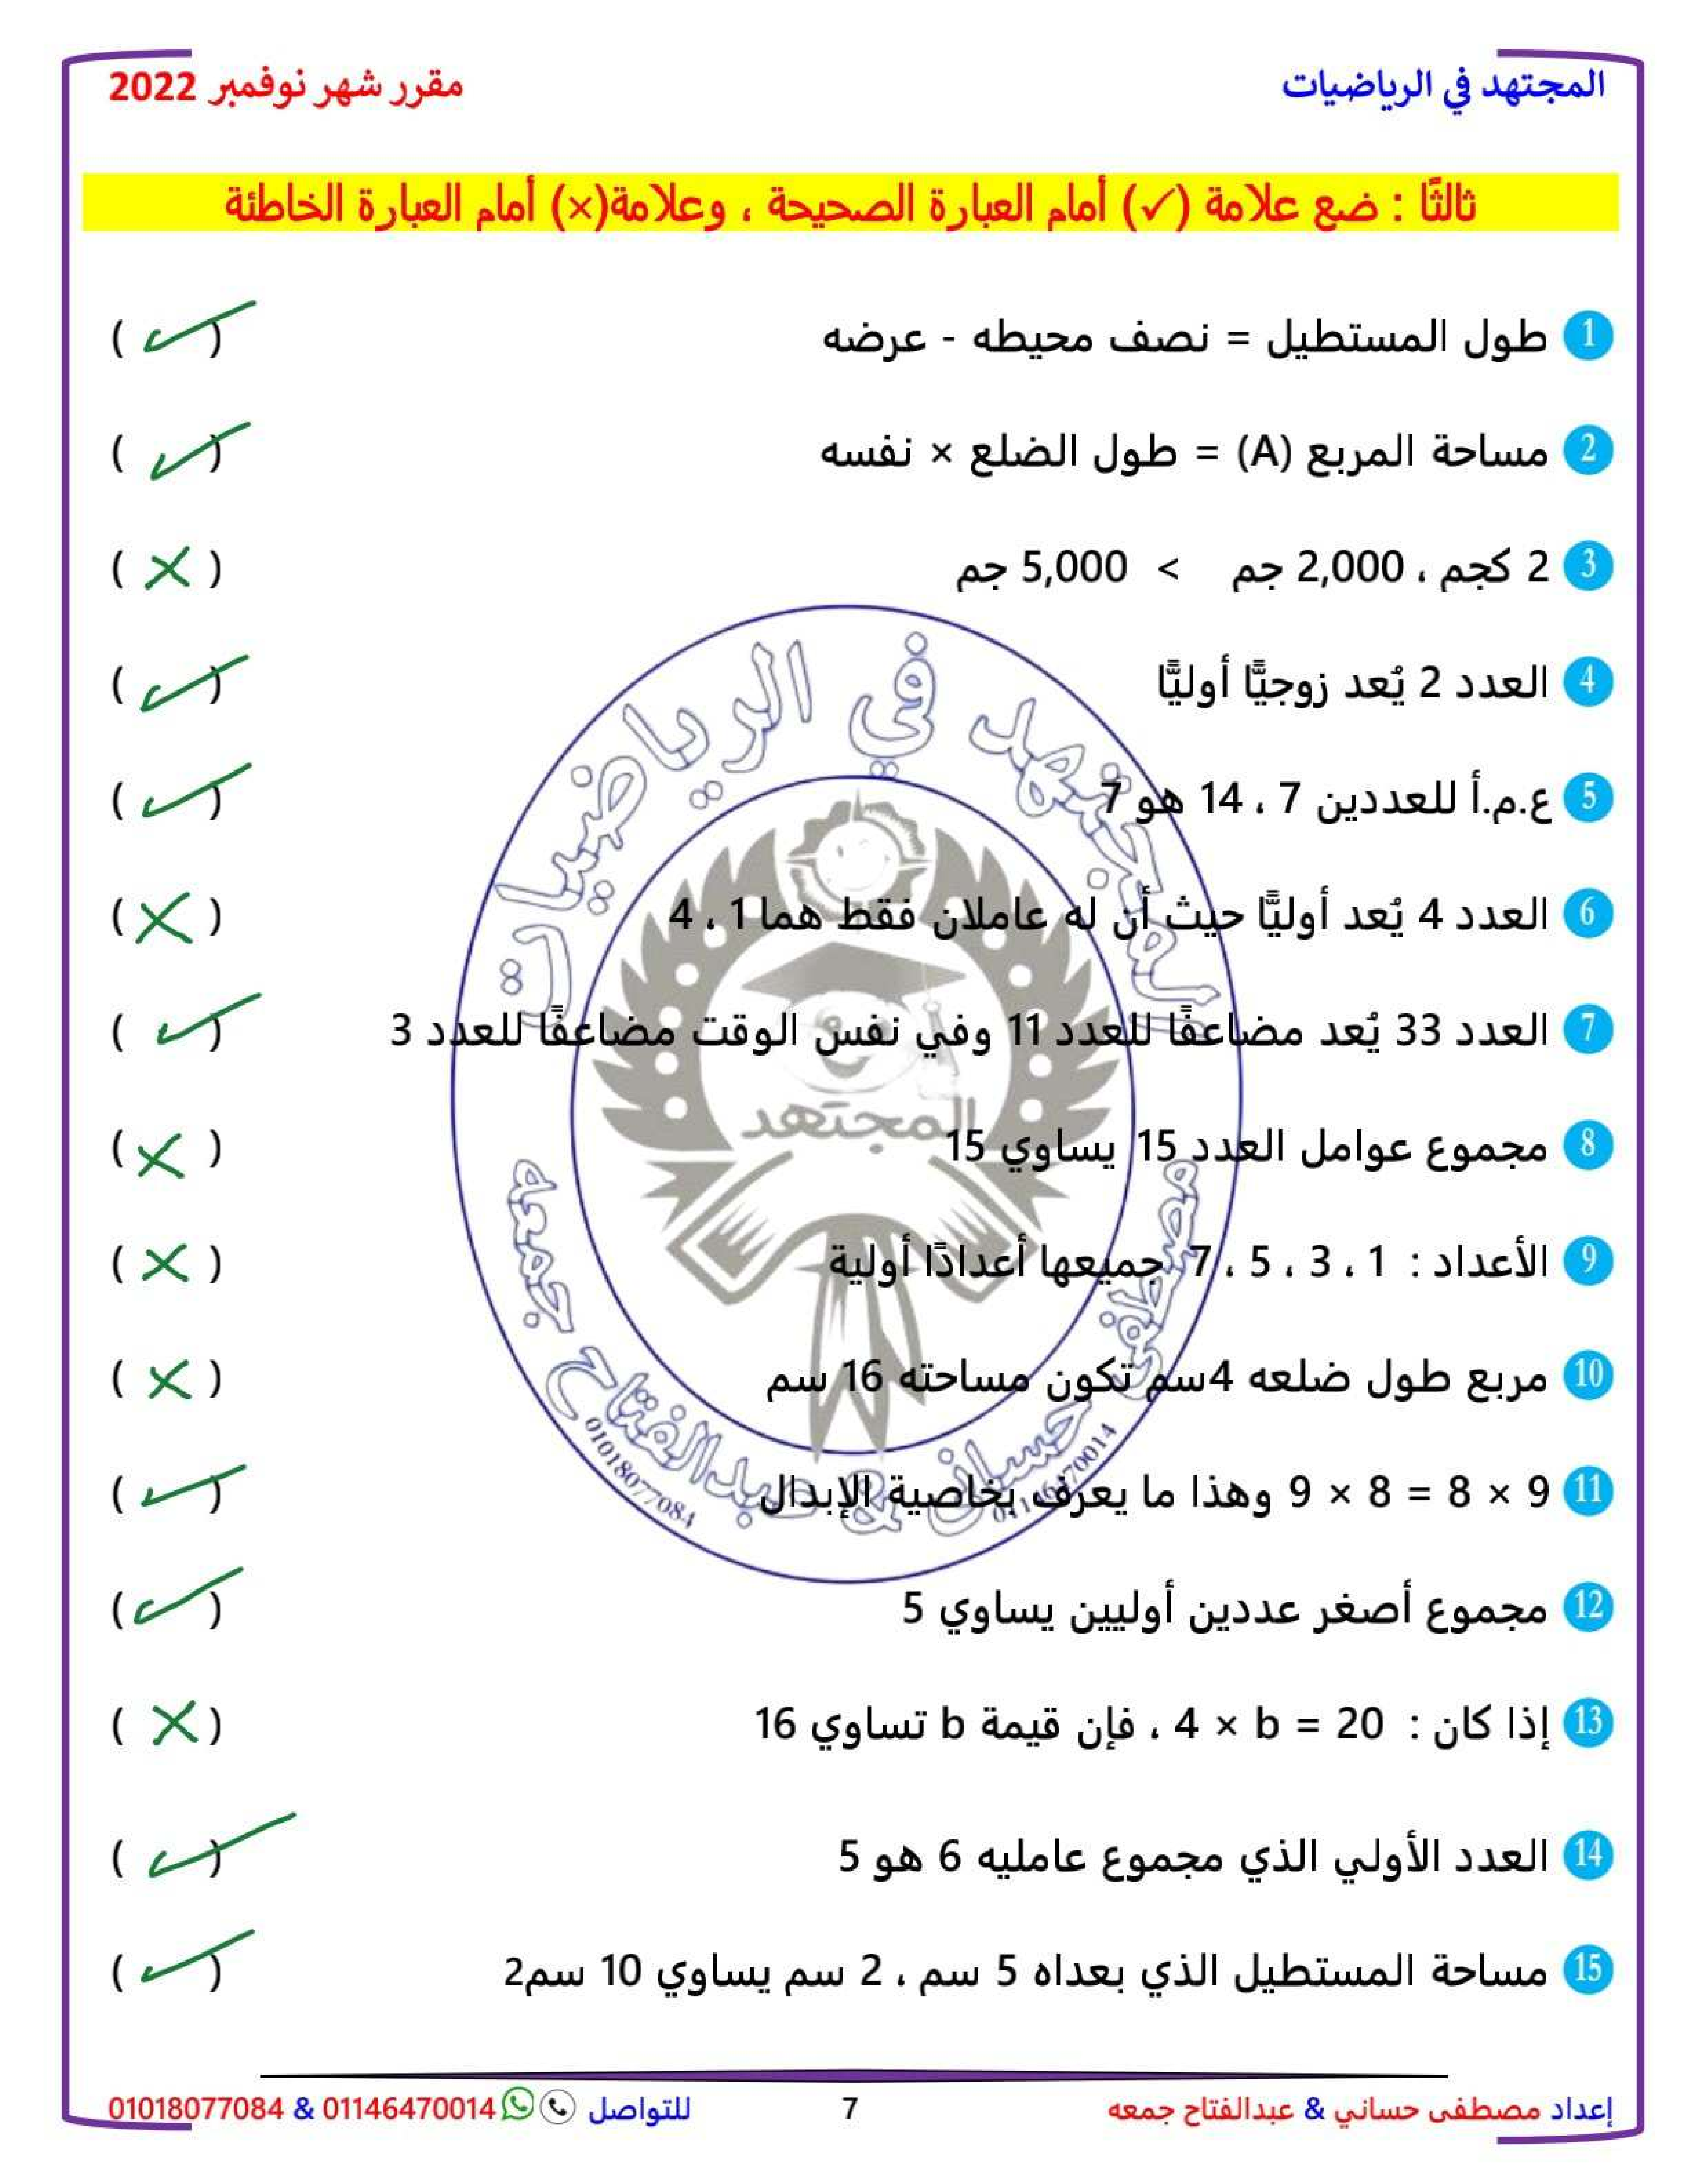 المجتهد في الرياضيات
مقرر شهر نوفمبر 2022
ثالثًا : ضع علامة (✓) أمام العبارة الصحيحة ، وعلامة(×) أمام العبارة الخاطئة
1 طول المستطيل = نصف محيطه - عرضه (✓)
2 مساحة المربع (A) = طول الضلع × نفسه (✓)
3 2 كجم ، 2,000 جم > 5,000 جم (×)
4 العدد 2 يُعد زوجيًّا أوليًّا (✓)
5 ع.م.أ للعددين 7 ، 14 هو 7 (✓)
6 العدد 4 يُعد أوليًّا حيث أن له عاملان فقط هما 1 ، 4 (×)
7 العدد 33 يُعد مضاعفًا للعدد 11 وفي نفس الوقت مضاعفًا للعدد 3 (✓)
8 مجموع عوامل العدد 15 يساوي 15 (×)
9 الأعداد : 1 ، 3 ، 5 ، 7 جميعها أعدادًا أولية (×)
10 مربع طول ضلعه 4سم تكون مساحته 16 سم (×)
11 9 × 8 = 8 × 9 وهذا ما يعرف بخاصية الإبدال (✓)
12 مجموع أصغر عددين أوليين يساوي 5 (✓)
13 إذا كان : 4 × b = 20 ، فإن قيمة b تساوي 16 (×)
14 العدد الأولي الذي مجموع عامليه 6 هو 5 (✓)
15 مساحة المستطيل الذي بعداه 5 سم ، 2 سم يساوي 10 سم2 (✓)
المجتهد في الرياضيات
المجتهد
مصطفى حساني & عبدالفتاح جمعه
01146470014
01018077084
إعداد مصطفى حساني & عبدالفتاح جمعه
7
للتواصل 01146470014 & 01018077084